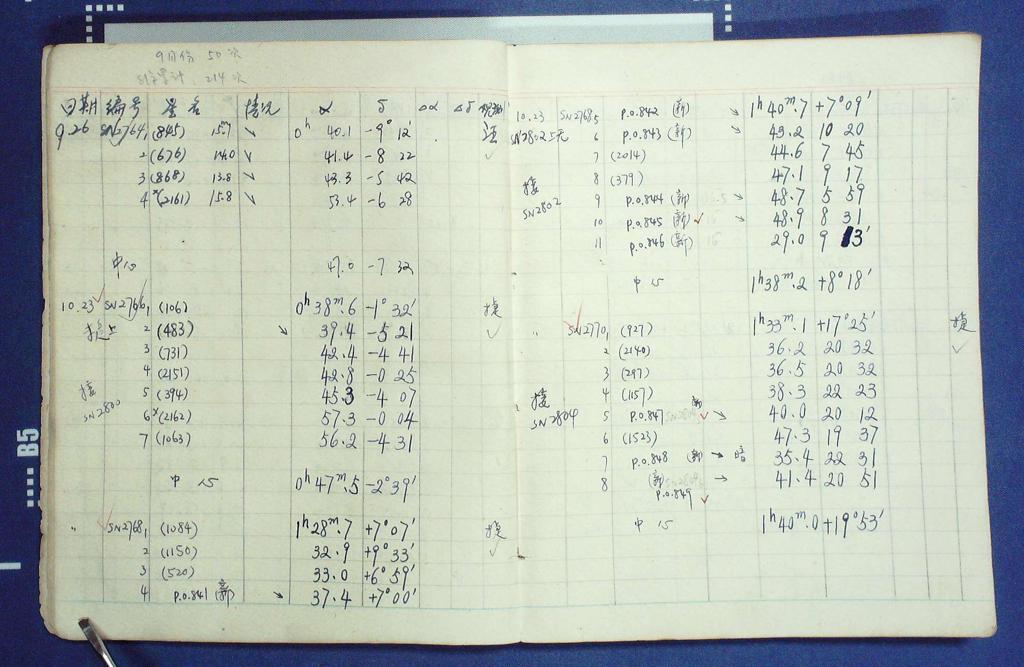 9月份 50次
214次
日期 编号 星名 情况 α δ Δα Δδ
9.26 SN2764, (845) 15.7 ↘ 0h 40.1 -9° 12'
2 (676) 14.0 ↘ 41.4 -8 22
3 (868) 13.8 ↘ 43.3 -5 42
4 *(2161) 15.8 ↘ 53.4 -6 28
中心 47.0 -7 32
10.23 SN2766, (106) 0h38m.6 -1° 32'
2 (483) ↘ 39.4 -5 21
3 (731) 42.4 -4 41
4 (2151) 42.8 -0 25
接 SN2800 5 (394) 45.3 -4 07
6 *(2162) 57.3 -0 04
7 (1063) 56.2 -4 31
中心 0h47m.5 -2°39'
" SN2768, (1084) 1h28m.7 +7°07'
2 (1150) 32.9 +9°33'
3 (520) 33.0 +6°59'
4 P.O.841 (新) ↘ 37.4 +7°00'
10.23 SN2768 5 P.O.842 (新) 1h40m.7 +7°09'
SN2802 6 P.O.843 (新) ↘ 43.2 10 20
7 (2014) 44.6 7 45
8 (379) 47.1 9 17
接 SN2802 9 P.O.844 (新) ↘ 48.7 5 59
10 P.O.845 (新) ✓ ↘ 48.9 8 31
11 P.O.846 (新) 29.0 9 13'
中心 1h38m.2 +8°18'
" SN2770, (927) 1h33m.1 +17°25'
2 (2140) 36.2 20 32
3 (297) 36.5 20 32
接 SN2804 4 (1157) 38.3 22 23
5 P.O.847 新 ✓ ↘ 40.0 20 12
6 (1523) 47.3 19 37
7 P.O.848 (新) → 暗 35.4 22 31
8 (新) → 41.4 20 51
P.O.849 ✓
中心 1h40m.0 +19°53'
B5